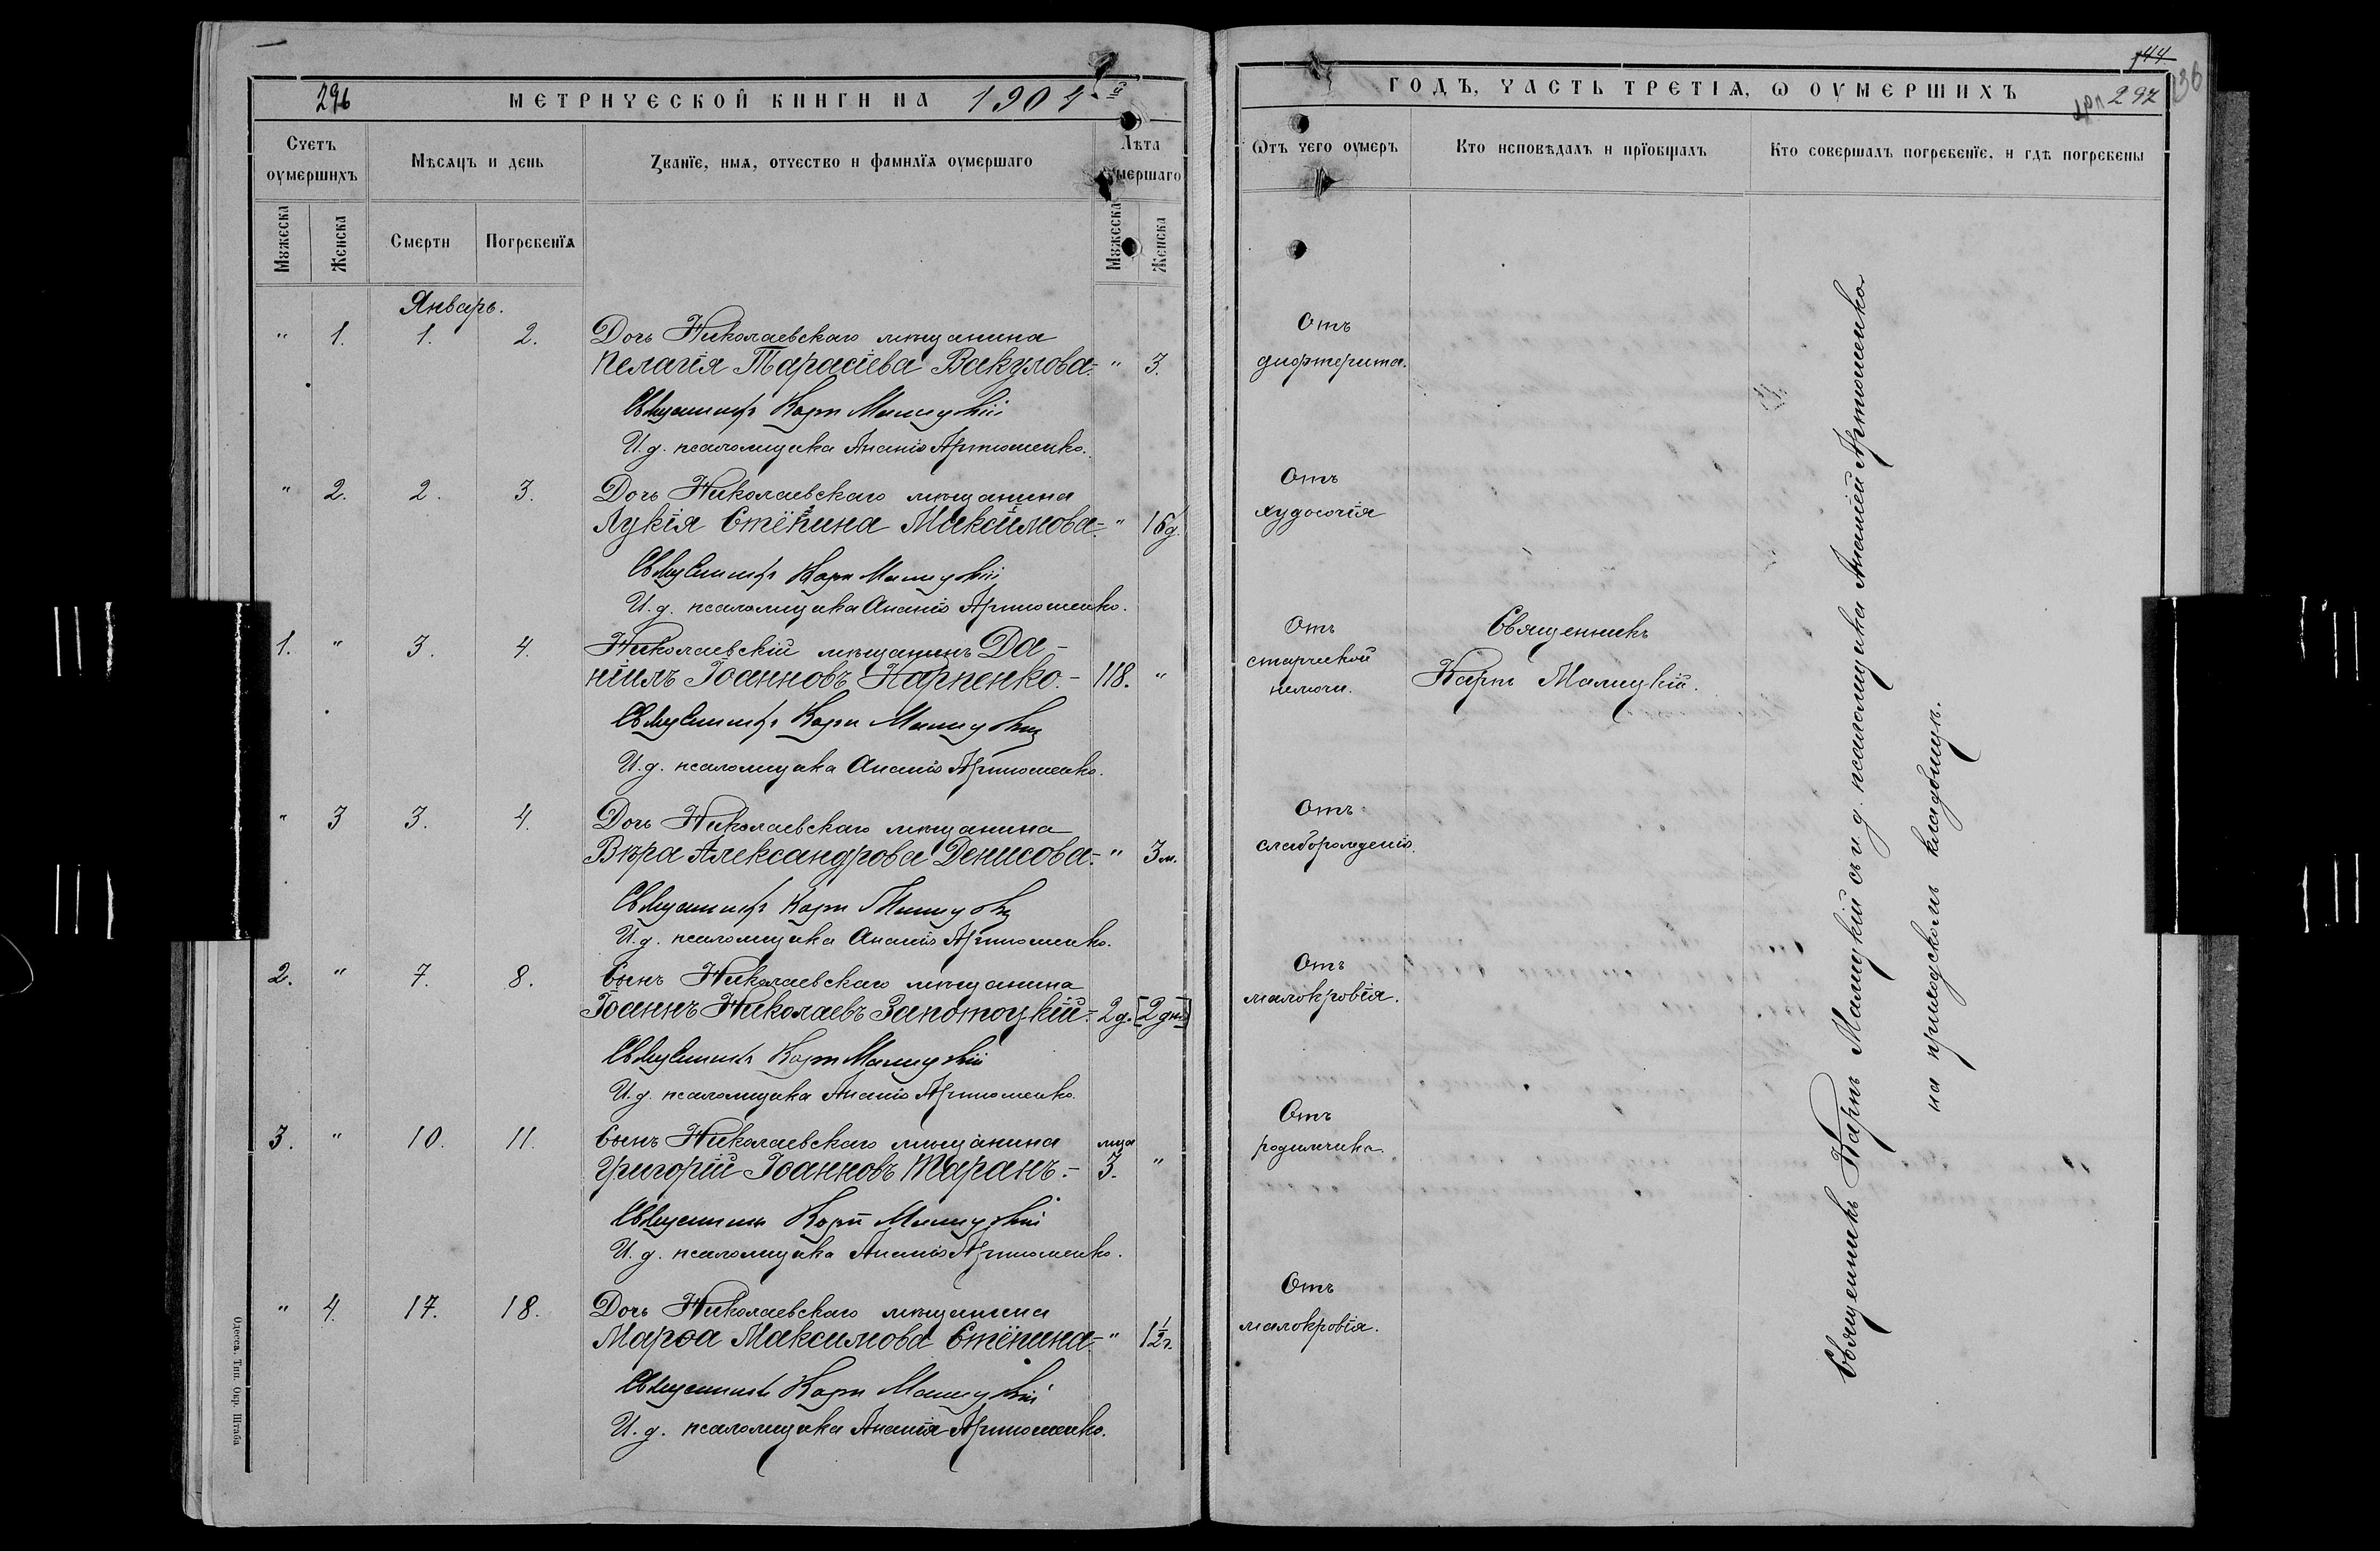 296
МЕТРИЧЕСКОЙ КНИГИ НА 1904
Счетъ оумершихъ
Мѣсяцъ и день
Званїе, имя, отчество и фамилїя оумершаго
Лѣта оумершаго
Мужеска
Женска
Смерти
Погребенїя
Мужеска
Женска
Январь.
" 1. 1. 2. Дочь Николаевскаго мѣщанина
Пелагія Тарасіева Вакулова.- " 3.
Священникъ Карпъ Малицкій
И. д. псаломщика Ананія Артюшенко.
" 2. 2. 3. Дочь Николаевскаго мѣщанина
Лукія Стёпина Максимова.- " 16д.
Священникъ Карпъ Малицкій
И. д. псаломщика Ананія Артюшенко.
1. " 3. 4. Николаевскій мѣщанинъ Да-
ніилъ Іоанновъ Карпенко.- 118. "
Священникъ Карпъ Малицкій
И. д. псаломщика Ананія Артюшенко.
" 3 3. 4. Дочь Николаевскаго мѣщанина
Вѣра Александрова Денисова.- " 3м.
Священникъ Карпъ Малицкій
И. д. псаломщика Ананія Артюшенко.
2. " 7. 8. Сынъ Николаевскаго мѣщанина
Іоаннъ Николаевъ Запотоцкій.- 2д. [2 дня]
Священникъ Карпъ Малицкій
И. д. псаломщика Ананія Артюшенко.
3. " 10. 11. Сынъ Николаевскаго мѣщанина мца
Григорій Іоанновъ Таранъ.- 3. "
Священникъ Карпъ Малицкій
И. д. псаломщика Ананія Артюшенко.
" 4. 17. 18. Дочь Николаевскаго мѣщанина
Марѳа Максимова Стёпина- " 1½г.
Священникъ Карпъ Малицкій
И. д. псаломщика Ананія Артюшенко.
Одесса. Тип. Окр. Штаба
144
136
ГОДЪ, ЧАСТЬ ТРЕТІЯ, Ѡ ОУМЕРШИХЪ
297
Ѿтъ чего оумеръ
Кто исповѣдалъ и прїобщалъ
Кто совершалъ погребенїе, и гдѣ погребены
Отъ
дифтерита.
Отъ
худосочія
Отъ
старческой
немочи.
Священникъ
Карпъ Малицкій.
Отъ
слаборожденія.
Отъ
малокровія.
Отъ
родимчика.
Отъ
малокровія.
Священникъ Карпъ Малицкій съ и. д. псаломщика Ананіей Артюшенко
на приходскомъ кладбищѣ.